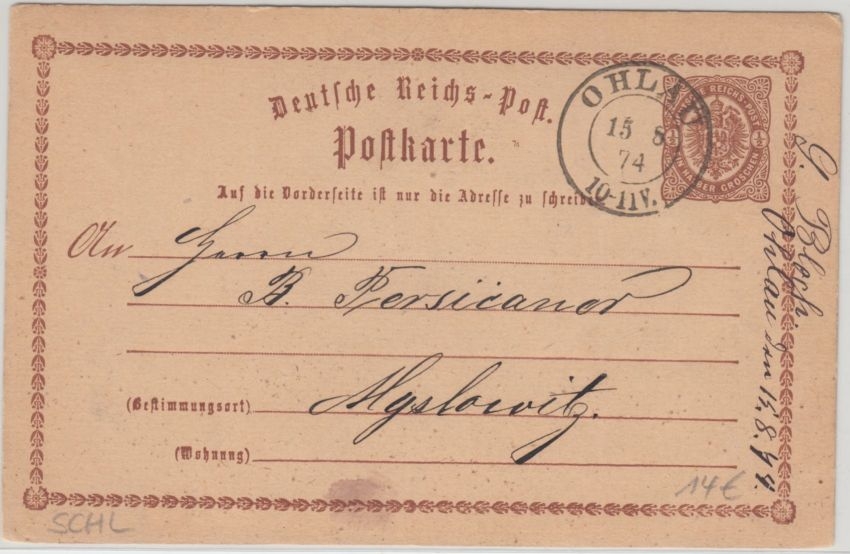 Deutsche Reichs-Post.
Postkarte.
Auf die Vorderseite ist nur die Adresse zu schreiben
OHLAU
15 8
74
10-11V.
DEUTSCHE REICHS-POST
½ ½
EIN HALBER GROSCHEN
An Herrn
B. Persicaner
(Bestimmungsort) Myslowitz.
(Wohnung)
G. Bloch.
Ohlau den 15.8.74.
SCHL
14€